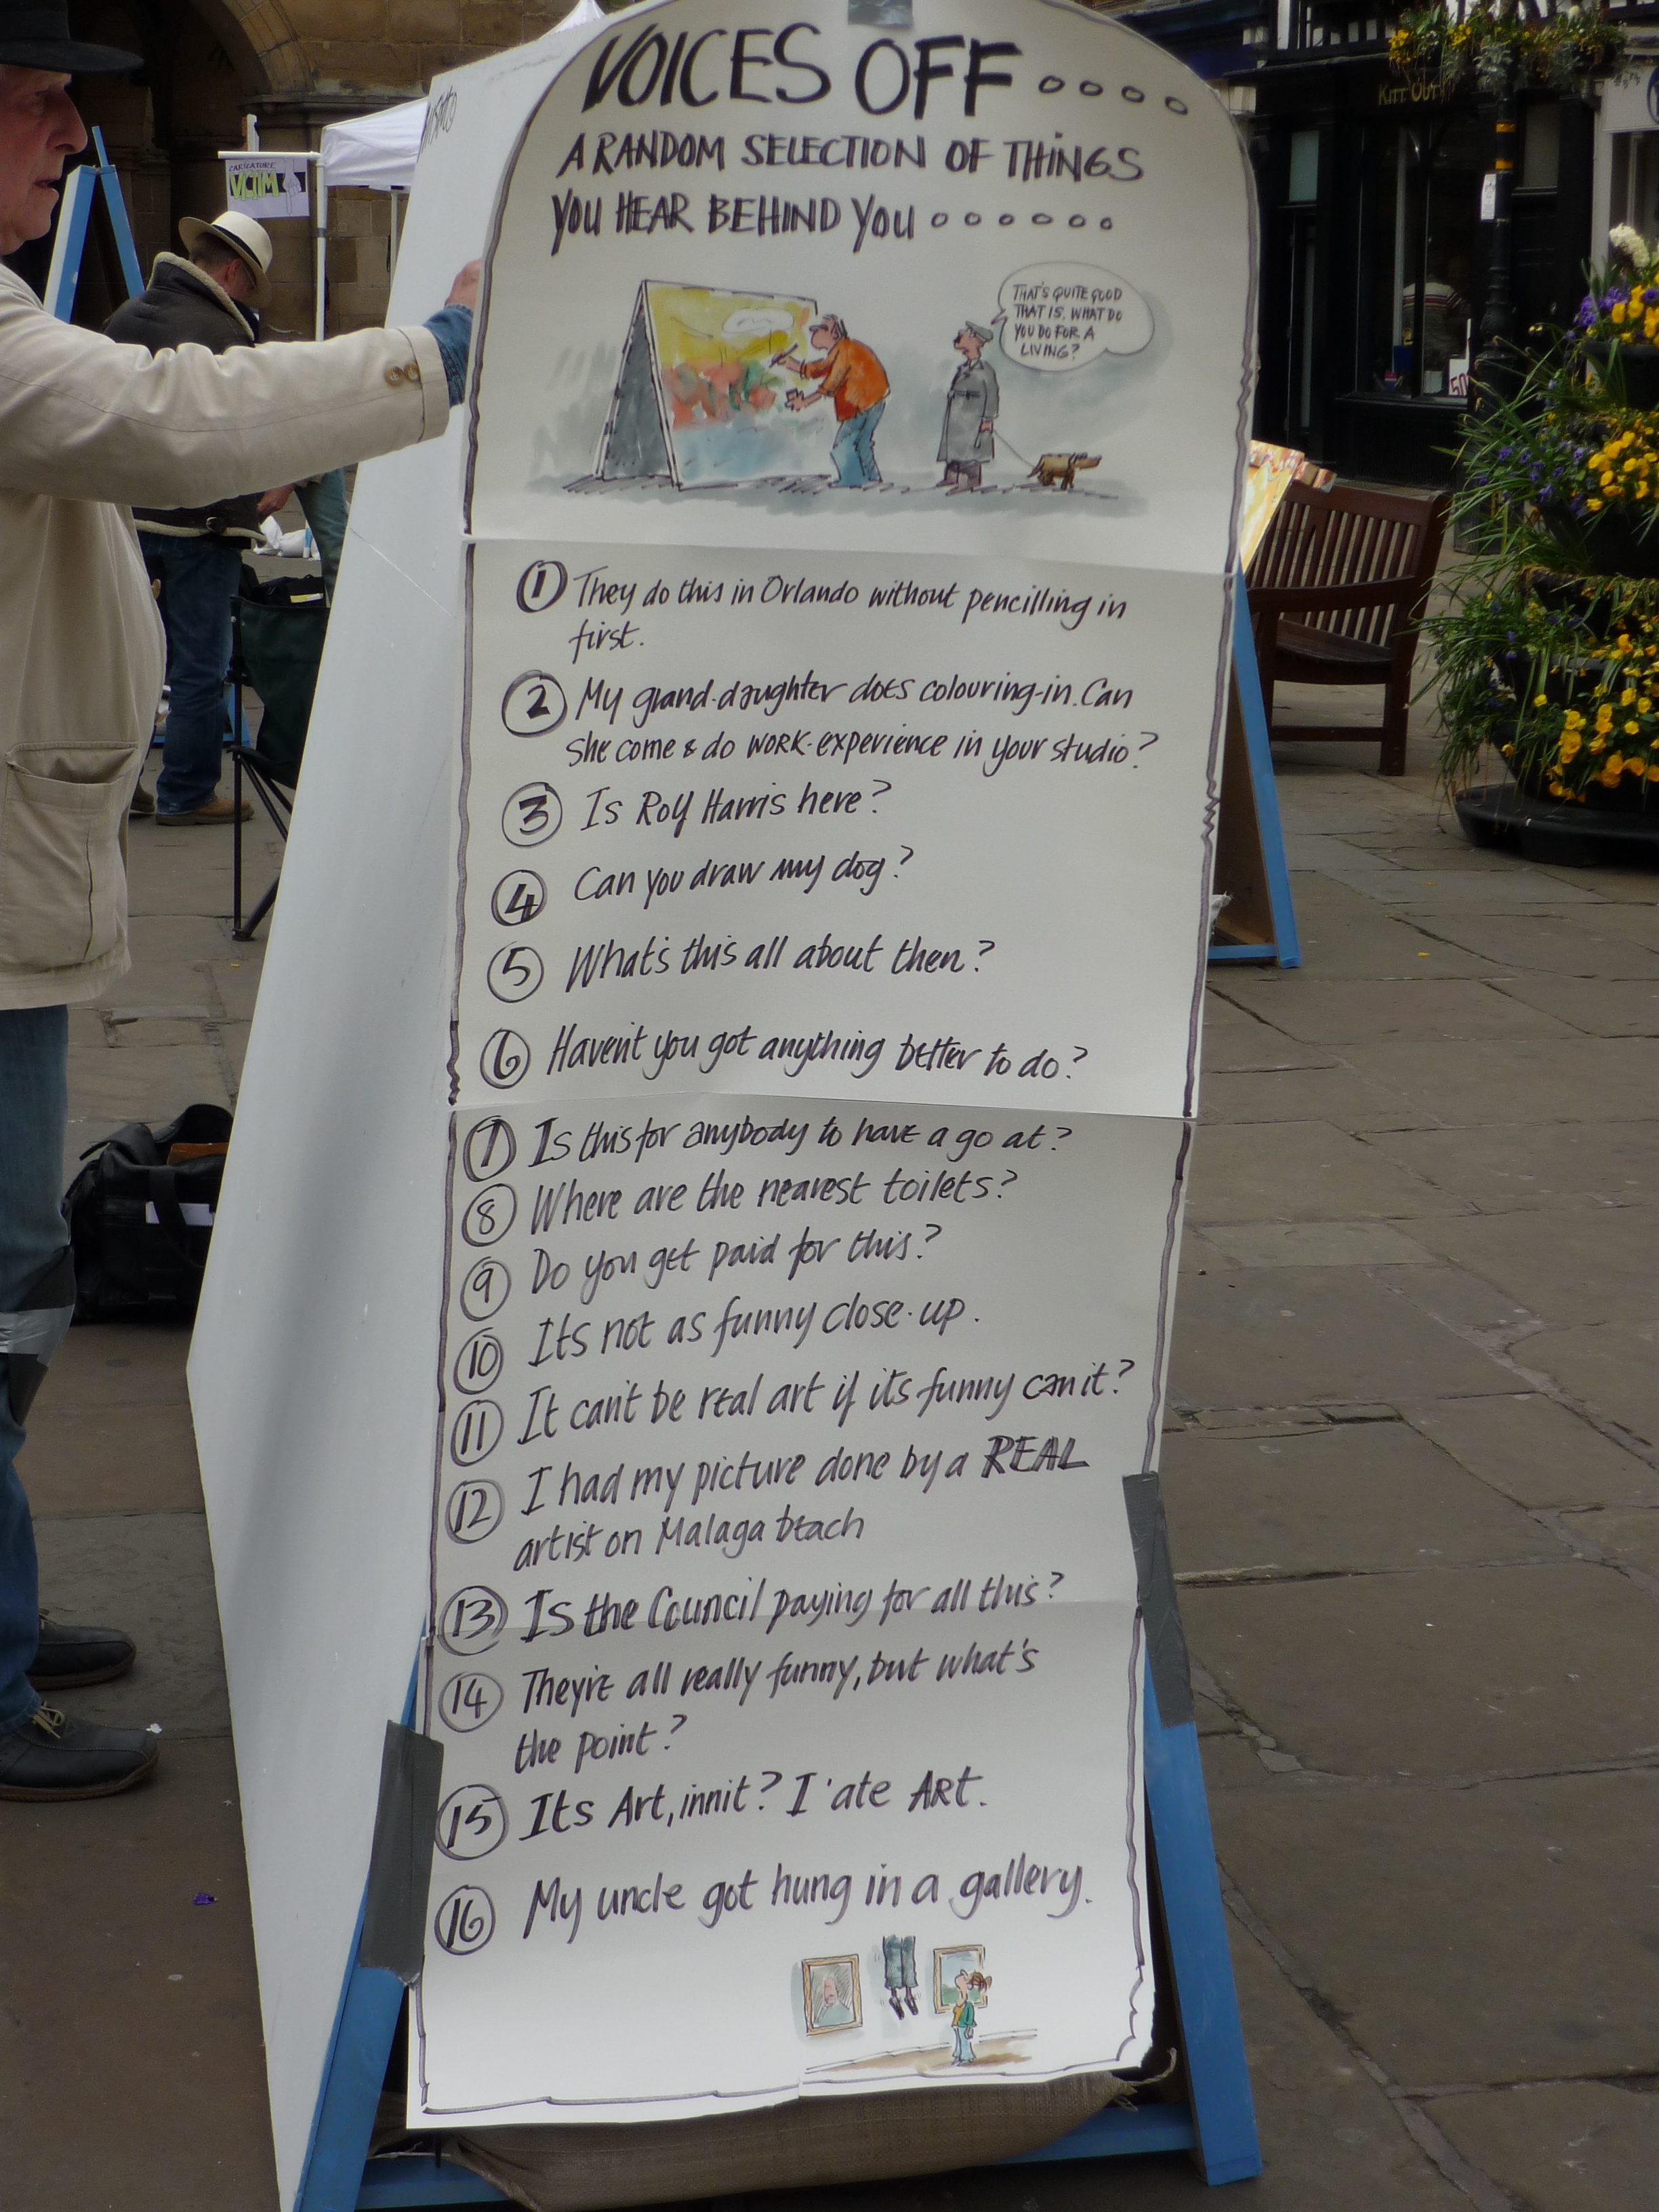 VOICES OFF....
A RANDOM SELECTION OF THINGS
YOU HEAR BEHIND YOU......
THAT'S QUITE GOOD
THAT IS. WHAT DO
YOU DO FOR A
LIVING?
1 They do this in Orlando without pencilling in
first.
2 My grand-daughter does colouring-in. Can
she come & do WORK-experience in your studio?
3 Is Rolf Harris here?
4 Can you draw my dog?
5 What's this all about then?
6 Haven't you got anything better to do?
7 Is this for anybody to have a go at?
8 Where are the nearest toilets?
9 Do you get paid for this?
10 Its not as funny close-up.
11 It can't be real art if it's funny can it?
12 I had my picture done by a REAL
artist on Malaga beach
13 Is the Council paying for all this?
14 They're all really funny, but what's
the point?
15 Its Art, innit? I 'ate ART.
16 My uncle got hung in a gallery.
CARICATURE
VICTIM
50